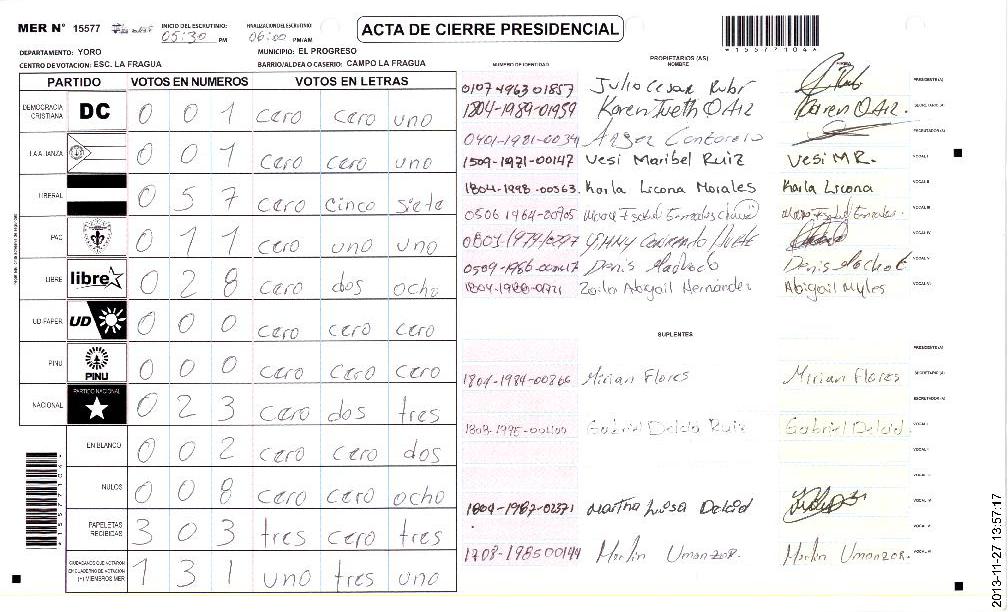 MER Nº 15577 INICIO DEL ESCRUTINIO: 05:30 PM FINALIZACION DEL ESCRUTINIO: 06:00 PM/AM
ACTA DE CIERRE PRESIDENCIAL
DEPARTAMENTO: YORO MUNICIPIO: EL PROGRESO
CENTRO DE VOTACION: ESC. LA FRAGUA BARRIO/ALDEA O CASERIO: CAMPO LA FRAGUA
PARTIDO VOTOS EN NUMEROS VOTOS EN LETRAS
DEMOCRACIA CRISTIANA DC 0 0 1 cero cero uno
LA ALIANZA 0 0 1 cero cero uno
LIBERAL 0 5 7 cero cinco siete
PAC 0 1 1 cero uno uno
LIBRE libre 0 2 8 cero dos ocho
UD-FAPER UD 0 0 0 cero cero cero
PINU PINU 0 0 0 cero cero cero
NACIONAL PARTIDO NACIONAL 0 2 3 cero dos tres
EN BLANCO 0 0 2 cero cero dos
NULOS 0 0 8 cero cero ocho
PAPELETAS RECIBIDAS 3 0 3 tres cero tres
CIUDADANOS QUE VOTARON EN CUADERNO DE VOTACION (+) MIEMBROS MER 1 3 1 uno tres uno
NUMERO DE IDENTIDAD PROPIETARIOS (AS) NOMBRE FIRMA
0107-1963-01857 Julio Cesar Rubi PRESIDENTE(A)
1804-1989-01959 Karen Iveth Karen SECRETARIO(A)
0401-1981-0034 ESCRUTADOR(A)
1509-1971-00147 Vesi Maribel Ruiz Vesi MR. VOCAL I
1804-1998-00563 Karla Licona Morales Karla Licona VOCAL II
0506 1964-00705 VOCAL III
VOCAL IV
Denis Denis VOCAL V
Zoila Abigail Hernández Abigail VOCAL VI
SUPLENTES
PRESIDENTE(A)
1804-1984-00266 Mirian Flores Mirian Flores SECRETARIO(A)
ESCRUTADOR(A)
Gabriel Delcid Ruiz Gabriel Delcid VOCAL I
VOCAL II
VOCAL III
1804-1982-02371 Martha Luisa Delcid VOCAL IV
VOCAL V
1708-1985 00144 Marlin Umanzor. Marlin Umanzor. VOCAL VI
155771041
2013-11-27 13:57:17